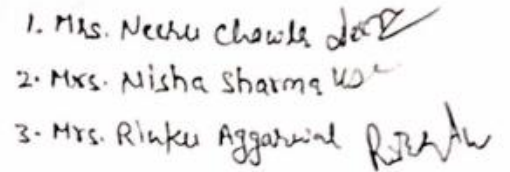 1. Mrs. Neeru Chawla
2. Mrs. Nisha Sharma
3. Mrs. Rinku Aggarwal